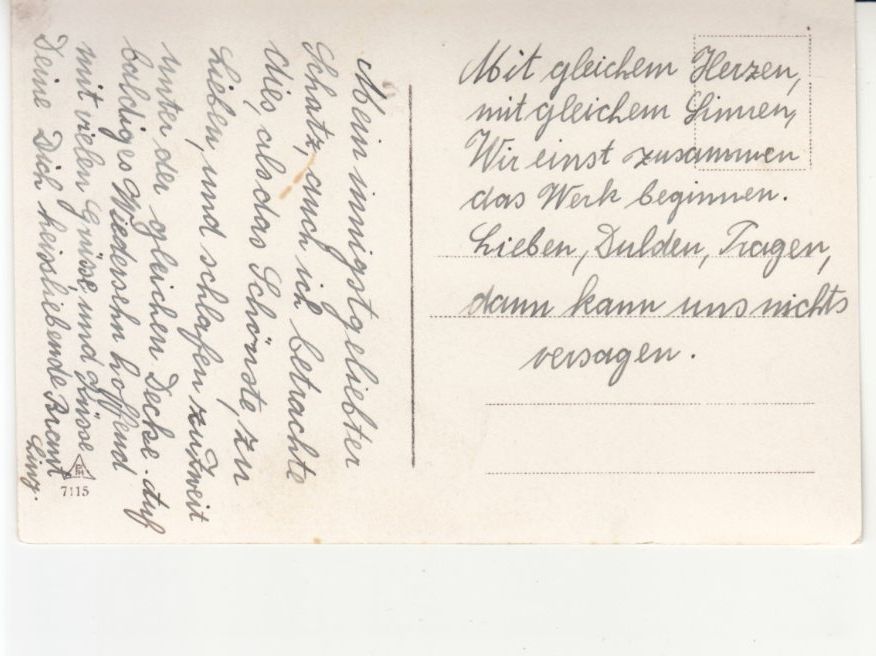 Mein innigstgeliebter
Schatz, auch ich betrachte
dies, als das Schönste, zu
Lieben, und schlafen zu Zweit
unter der gleichen Decke. Auf
baldiges Wiedersehn hoffend
mit vielen Grüsse und Küsse
Deine Dich heissliebende Braut
Mit gleichem Herzen,
mit gleichem Sinnen,
Wir einst zusammen
das Werk beginnen.
Lieben, Dulden, Tragen,
dann kann uns nichts
versagen.
7115